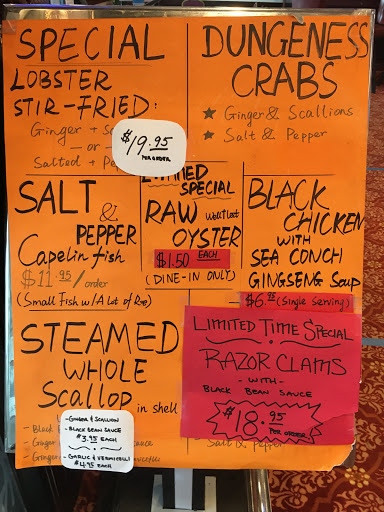 SPECIAL
LOBSTER
STIR-FRIED:
Ginger +
— or —
Salted +
$19.95
PER ORDER
DUNGENESS
CRABS
★ Ginger & Scallions
★ Salt & Pepper
SALT
&
PEPPER
Capelin fish
$11.95/order
(Small Fish w/A lot of Roe)
SPECIAL
RAW
OYSTER
$1.50 EACH
(DINE-IN ONLY)
BLACK
CHICKEN
WITH
SEA CONCH
GINGSENG Soup
(Single Serving)
STEAMED
WHOLE
Scallop in shell
- GINGER & SCALLION
- BLACK BEAN SAUCE
$3.95 EACH
- GARLIC & VERMICELLI
$4.95 EACH
LIMITED TIME SPECIAL
RAZOR CLAMS
- WITH -
BLACK BEAN SAUCE
$18.95
PER ORDER
Salt & Pepper